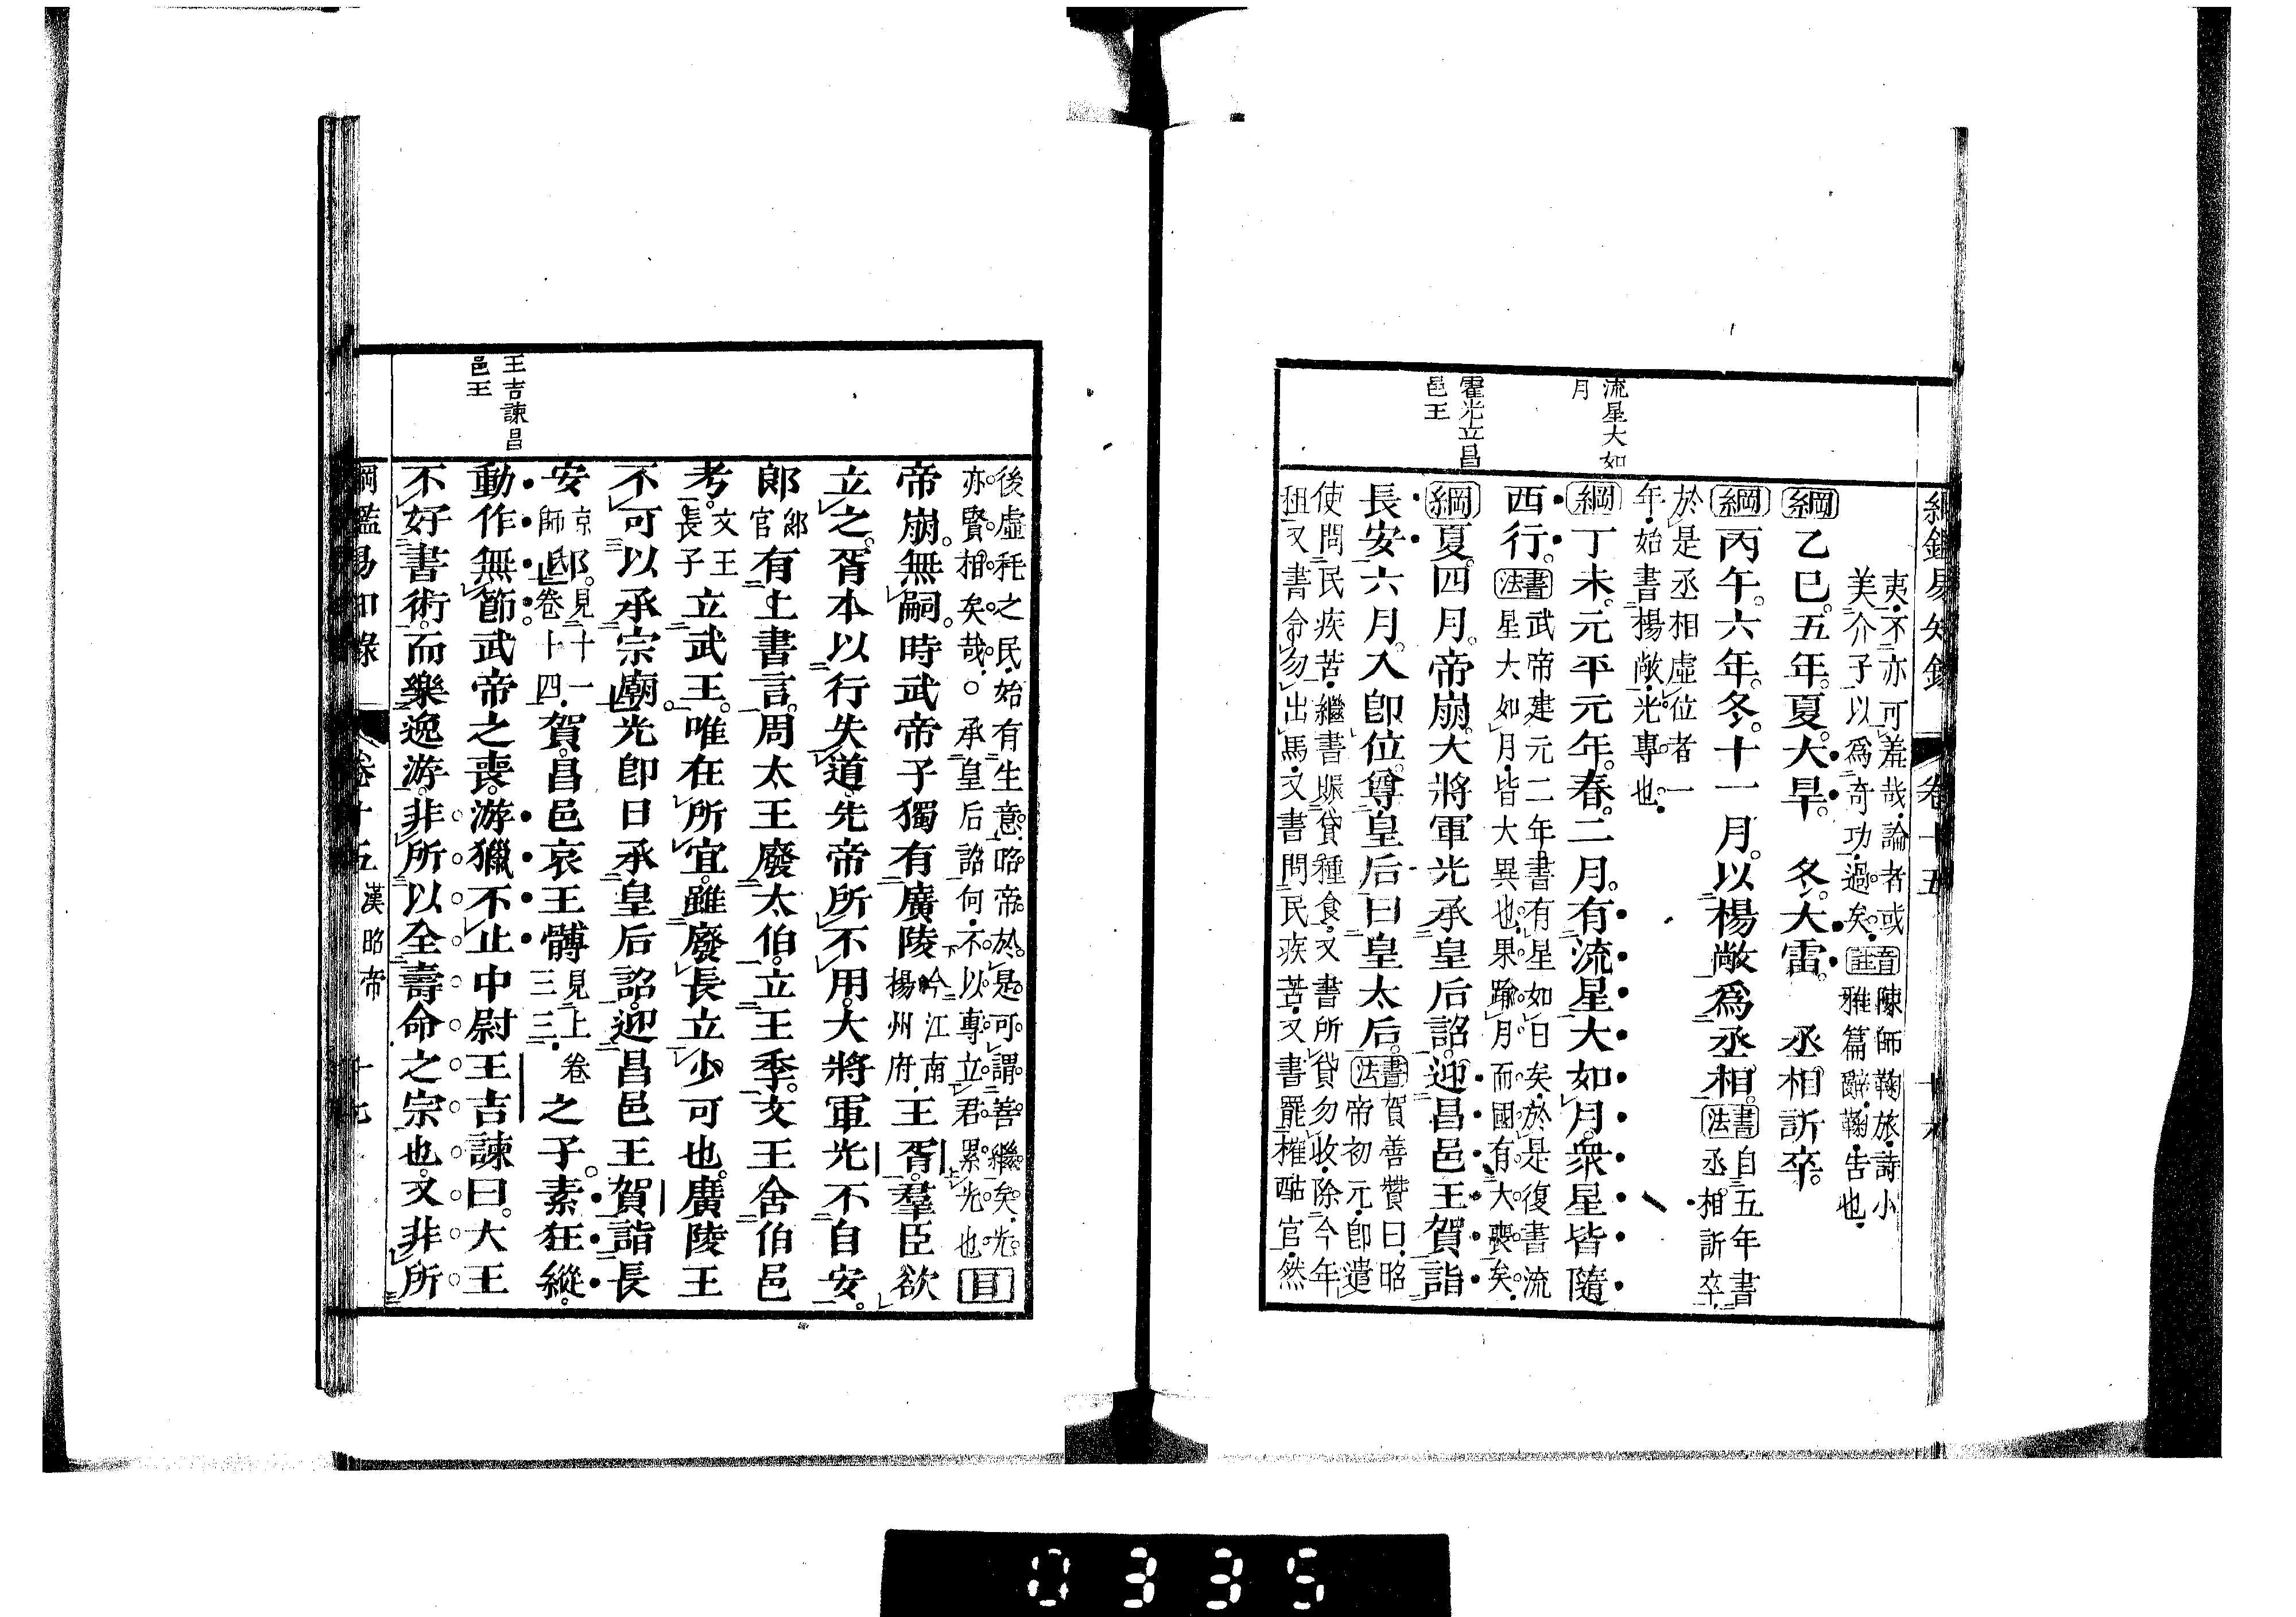 綱鑑易知錄 卷十五 十六
流星大如
月
霍光立昌
邑王
夷不亦可羞哉論者或音陳師鞠旅詩小
美介子以爲奇功過矣註雅篇辭鞠告也
綱乙巳五年夏大旱 冬大雷 丞相訢卒
綱丙午六年冬十一月以楊敞爲丞相書自五年書
法丞相訢卒
於是丞相虛位者一
年始書楊敞光專也
綱丁未元平元年春二月有流星大如月衆星皆隨
西行書武帝建元二年書有星如日矣於是復書流
法星大如月皆大異也果踰月而國有大喪矣
綱夏四月帝崩大將軍光承皇后詔迎昌邑王賀詣
長安六月入卽位尊皇后曰皇太后書賀善贊曰昭
法帝初元卽遣
使問民疾苦繼書賑貸種食又書所貸勿收除今年
租又書令勿出馬又書問民疾苦又書罷榷酤官然
王吉諫昌
邑王
後虛耗之民始有生意昭帝於是可謂善繼矣光
亦賢相矣哉○承皇后詔何不以專立君累光也目
帝崩無嗣時武帝子獨有廣陵今江南
揚州府王胥羣臣欲
立之胥本以行失道先帝所不用大將軍光不自安
郎郎
官有上書言周太王廢太伯立王季文王舍伯邑
考文王
長子立武王唯在所宜雖廢長立少可也廣陵王
不可以承宗廟光卽日承皇后詔迎昌邑王賀詣長
安京
師邸見十一
卷十四賀昌邑哀王髆見上卷
三三之子素狂縱
動作無節武帝之喪游獵不止中尉王吉諫曰大王
不好書術而樂逸游非所以全壽命之宗也又非所
綱鑑易知錄 卷十五 漢昭帝 十七
0335